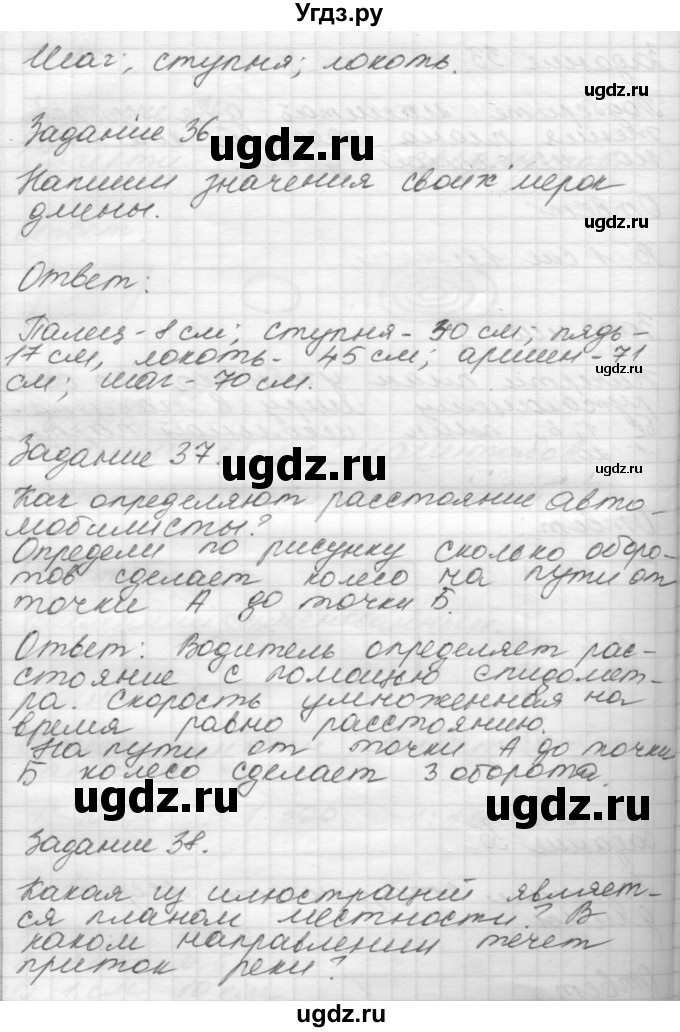 Угдз.ру
Шаг; ступня; локоть.
ugdz.ru
Задание 36
ugdz.ru
Напиши значения своих мерок
ugdz.ru
длины.
Ответ:
Палец - 8 см; ступня - 30 см; пядь -
17 см, локоть - 45 см; аршин - 71
ugdz.ru
см; шаг - 70 см.
Задание 37.
ugdz.ru
Как определяют расстояние авто-
мобилисты?
Определи по рисунку сколько оборо-
тов сделает колесо на пути от
ugdz.ru
точки А до точки Б.
Ответ: Водитель определяет рас-
стояние с помощью спидомет-
ра. Скорость умноженная на
время равно расстоянию.
На пути от точки А до точки
Б колесо сделает 3 оборота.
ugdz.ru
ugdz.ru
Задание 38.
Какая из илюстраций являет-
ся планом местности? В
каком направлении течет
приток реки?
ugdz.ru